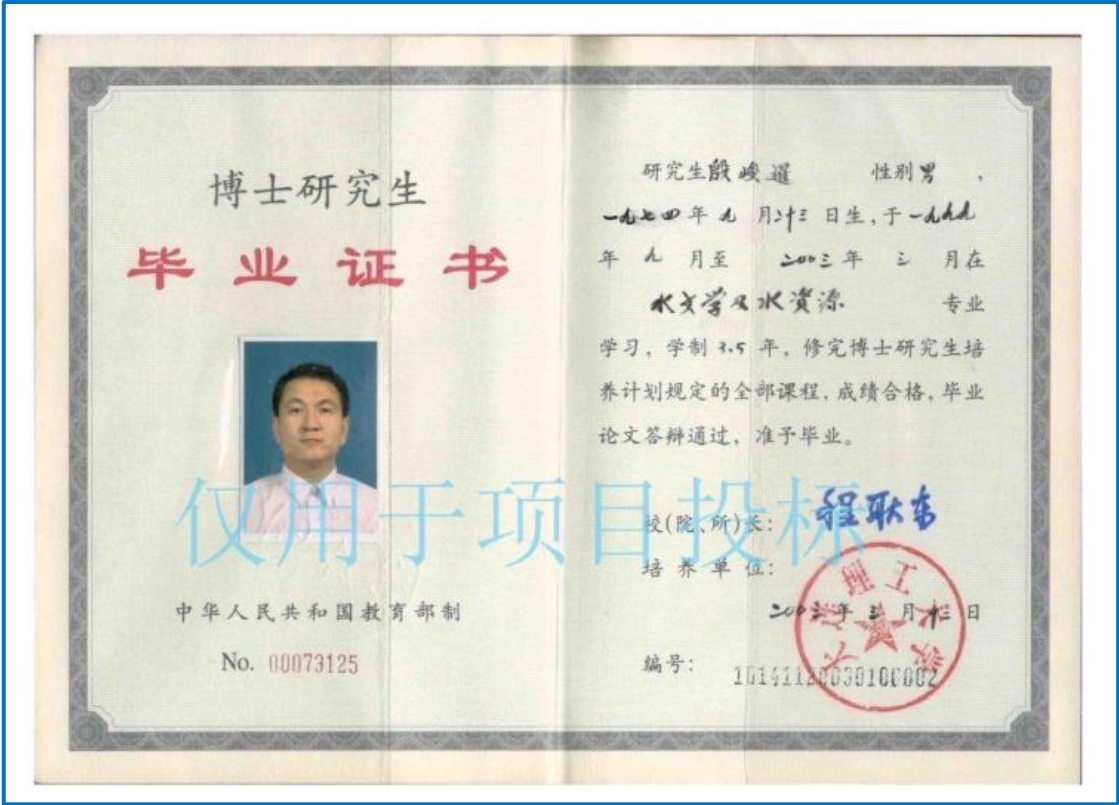 博士研究生
毕业证书
仅用于项目投标
中华人民共和国教育部制
No. 00073125
研究生殷峻暹 性别男,
一九七四年九月二十三日生,于一九九九
年九月至 二00三年 三 月在
水文学及水資源 专业
学习,学制3.5年,修完博士研究生培
养计划规定的全部课程,成绩合格,毕业
论文答辩通过,准予毕业。
校(院、所)长: 程耿东
培养单位:
大连理工大学
二00三年 三 月 十三 日
编号: 101411200301000002